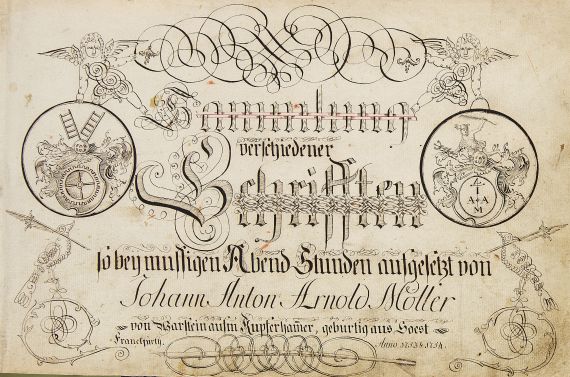 Sammlung
verschiedener
Schrifften
so bey mussigen Abend Stunden aufgesetzt von
Johann Anton Arnold Möller
von Warstein aufm Kupferham̄er, geburtig aus Soest
Francfurth. Anno 1753 & 1754.
I
A A
M